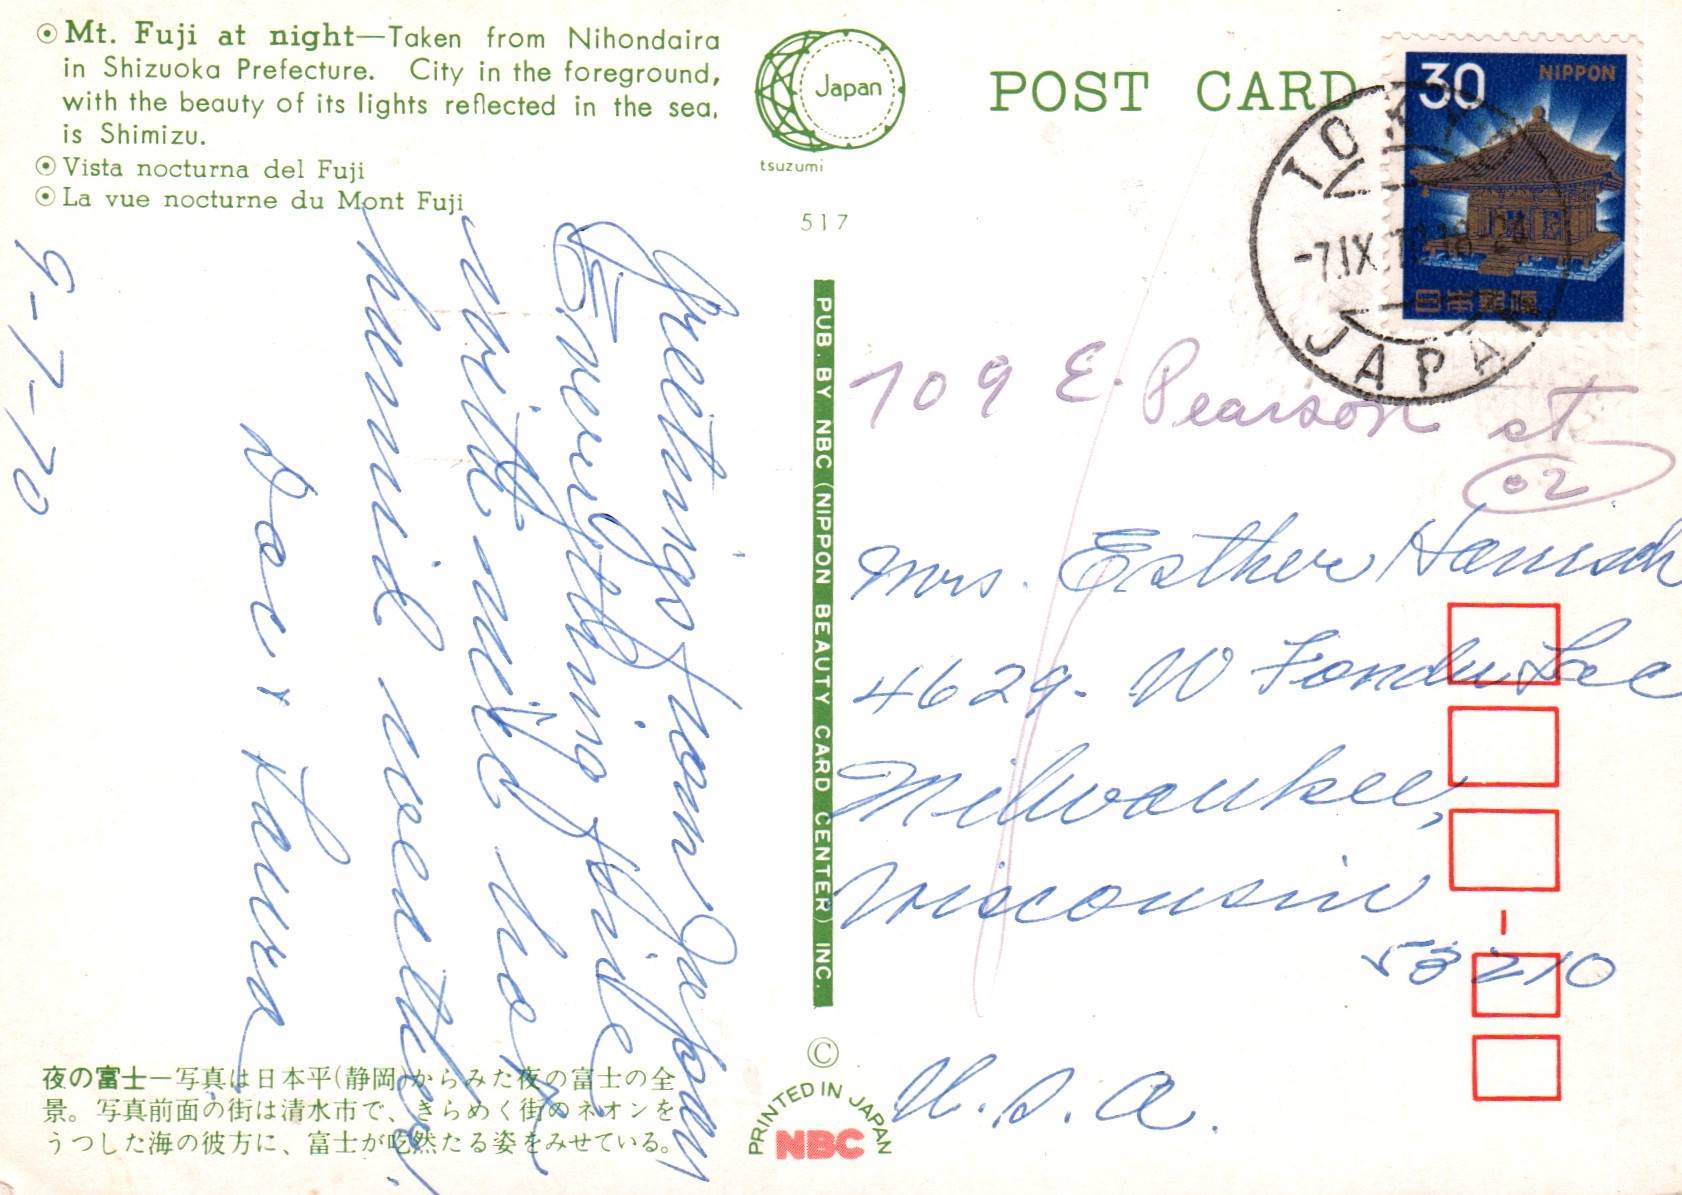 Mt. Fuji at night—Taken from Nihondaira
in Shizuoka Prefecture. City in the foreground,
with the beauty of its lights reflected in the sea,
is Shimizu.
Vista nocturna del Fuji
La vue nocturne du Mont Fuji
Japan
tsuzumi
517
POST CARD
30 NIPPON
日本郵便
JAPAN
-7.IX
9-7-70
Greetings from Japan
Everything fine
with mild hot
humid weather.
Doc + Laura
PUB. BY NBC (NIPPON BEAUTY CARD CENTER) INC.
709 E. Pearson st
02
Mrs. Esther
4629. W Fond du Lac
Milwaukee,
Wisconsin
53210
U.S.A.
夜の富士—写真は日本平(静岡)からみた夜の富士の全
景。写真前面の街は清水市で、きらめく街のネオンを
うつした海の彼方に、富士が屹然たる姿をみせている。
©
PRINTED IN JAPAN
NBC